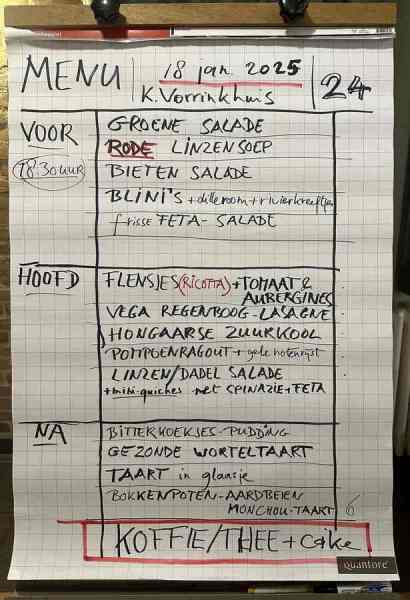 MENU
18 jan 2025
K. Vorrinkhuis
24
VOOR
18:30 uur
GROENE SALADE
RODE LINZENSOEP
BIETEN SALADE
BLINI'S + dilleroom + rivierkreeftjes
frisse FETA-SALADE
HOOFD
FLENSJES (RICOTTA) + TOMAAT &
AUBERGINES
VEGA REGENBOOG-LASAGNE
HONGAARSE ZUURKOOL
POMPOENRAGOUT + gele notenrijst
LINZEN/DADEL SALADE
+ mini-quiches met SPINAZIE + FETA
NA
BITTERKOEKJES-PUDDING
GEZONDE WORTELTAART
TAART in glaasje
BOKKENPOTEN-AARDBEIEN
MONCHOU-TAART 6
KOFFIE/THEE + cake
Quantore